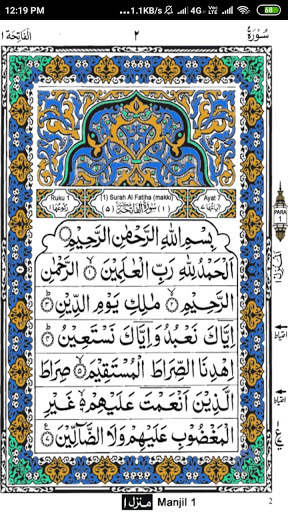 12:19 PM ...1.1KB/s 4G VoLTE
الْفَاتِحَة ١ ٢ سُوْرَةُ
Ruku 1 (1) Surah Al Fatiha (makki) Ayat 7
رکوعہا ١ (٥) سُوْرَةُ الْفَاتِحَةِ (١)
PARA 1
بِسْمِ اللهِ الرَّحْمٰنِ الرَّحِيْمِ
اَلْحَمْدُ لِلّٰهِ رَبِّ الْعٰلَمِيْنَ ١ الرَّحْمٰنِ
الرَّحِيْمِ ٢ مٰلِكِ يَوْمِ الدِّيْنِ ٣
اِيَّاكَ نَعْبُدُ وَاِيَّاكَ نَسْتَعِيْنُ ٤
اِهْدِنَا الصِّرَاطَ الْمُسْتَقِيْمَ ٥ صِرَاطَ
الَّذِيْنَ اَنْعَمْتَ عَلَيْهِمْ ٦ غَيْرِ
الْمَغْضُوْبِ عَلَيْهِمْ وَلَا الضَّآلِّيْنَ ٧
منزل ١ Manjil 1
2